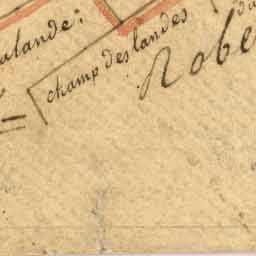 alande:
champ des landes
Robe
du